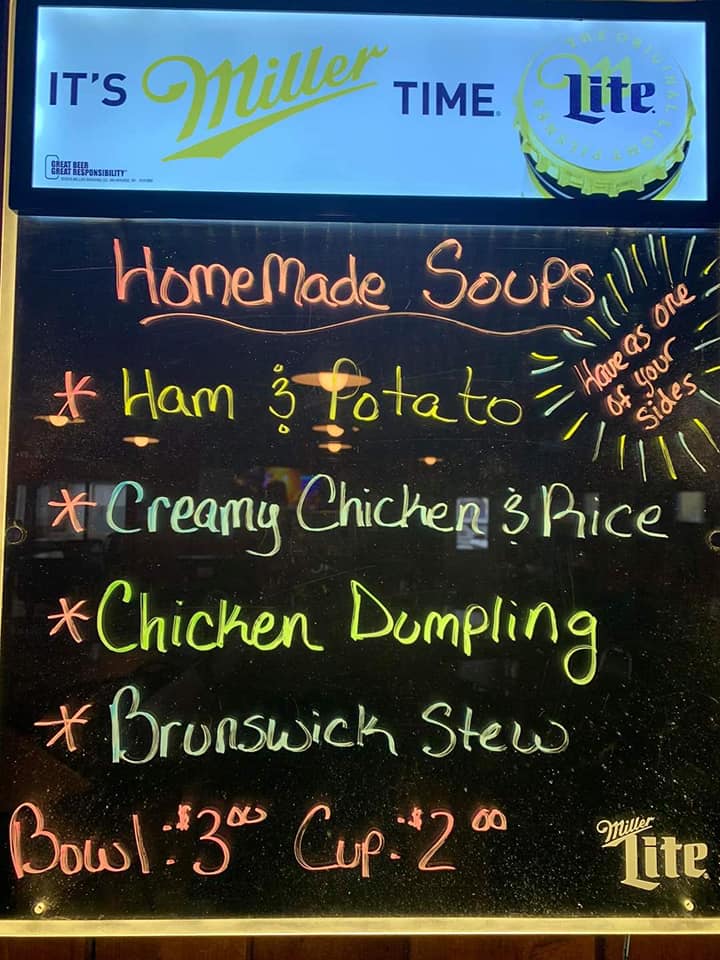 IT'S Miller TIME. Lite
THE ORIGINAL LIGHT PILSNER
GREAT BEER
GREAT RESPONSIBILITY
HomeMade Soups
Have as one
of your
sides
* Ham & Potato
* Creamy Chicken & Rice
* Chicken Dumpling
* Brunswick Stew
Bowl: $3⁰⁰ Cup: $2⁰⁰
Miller
Lite